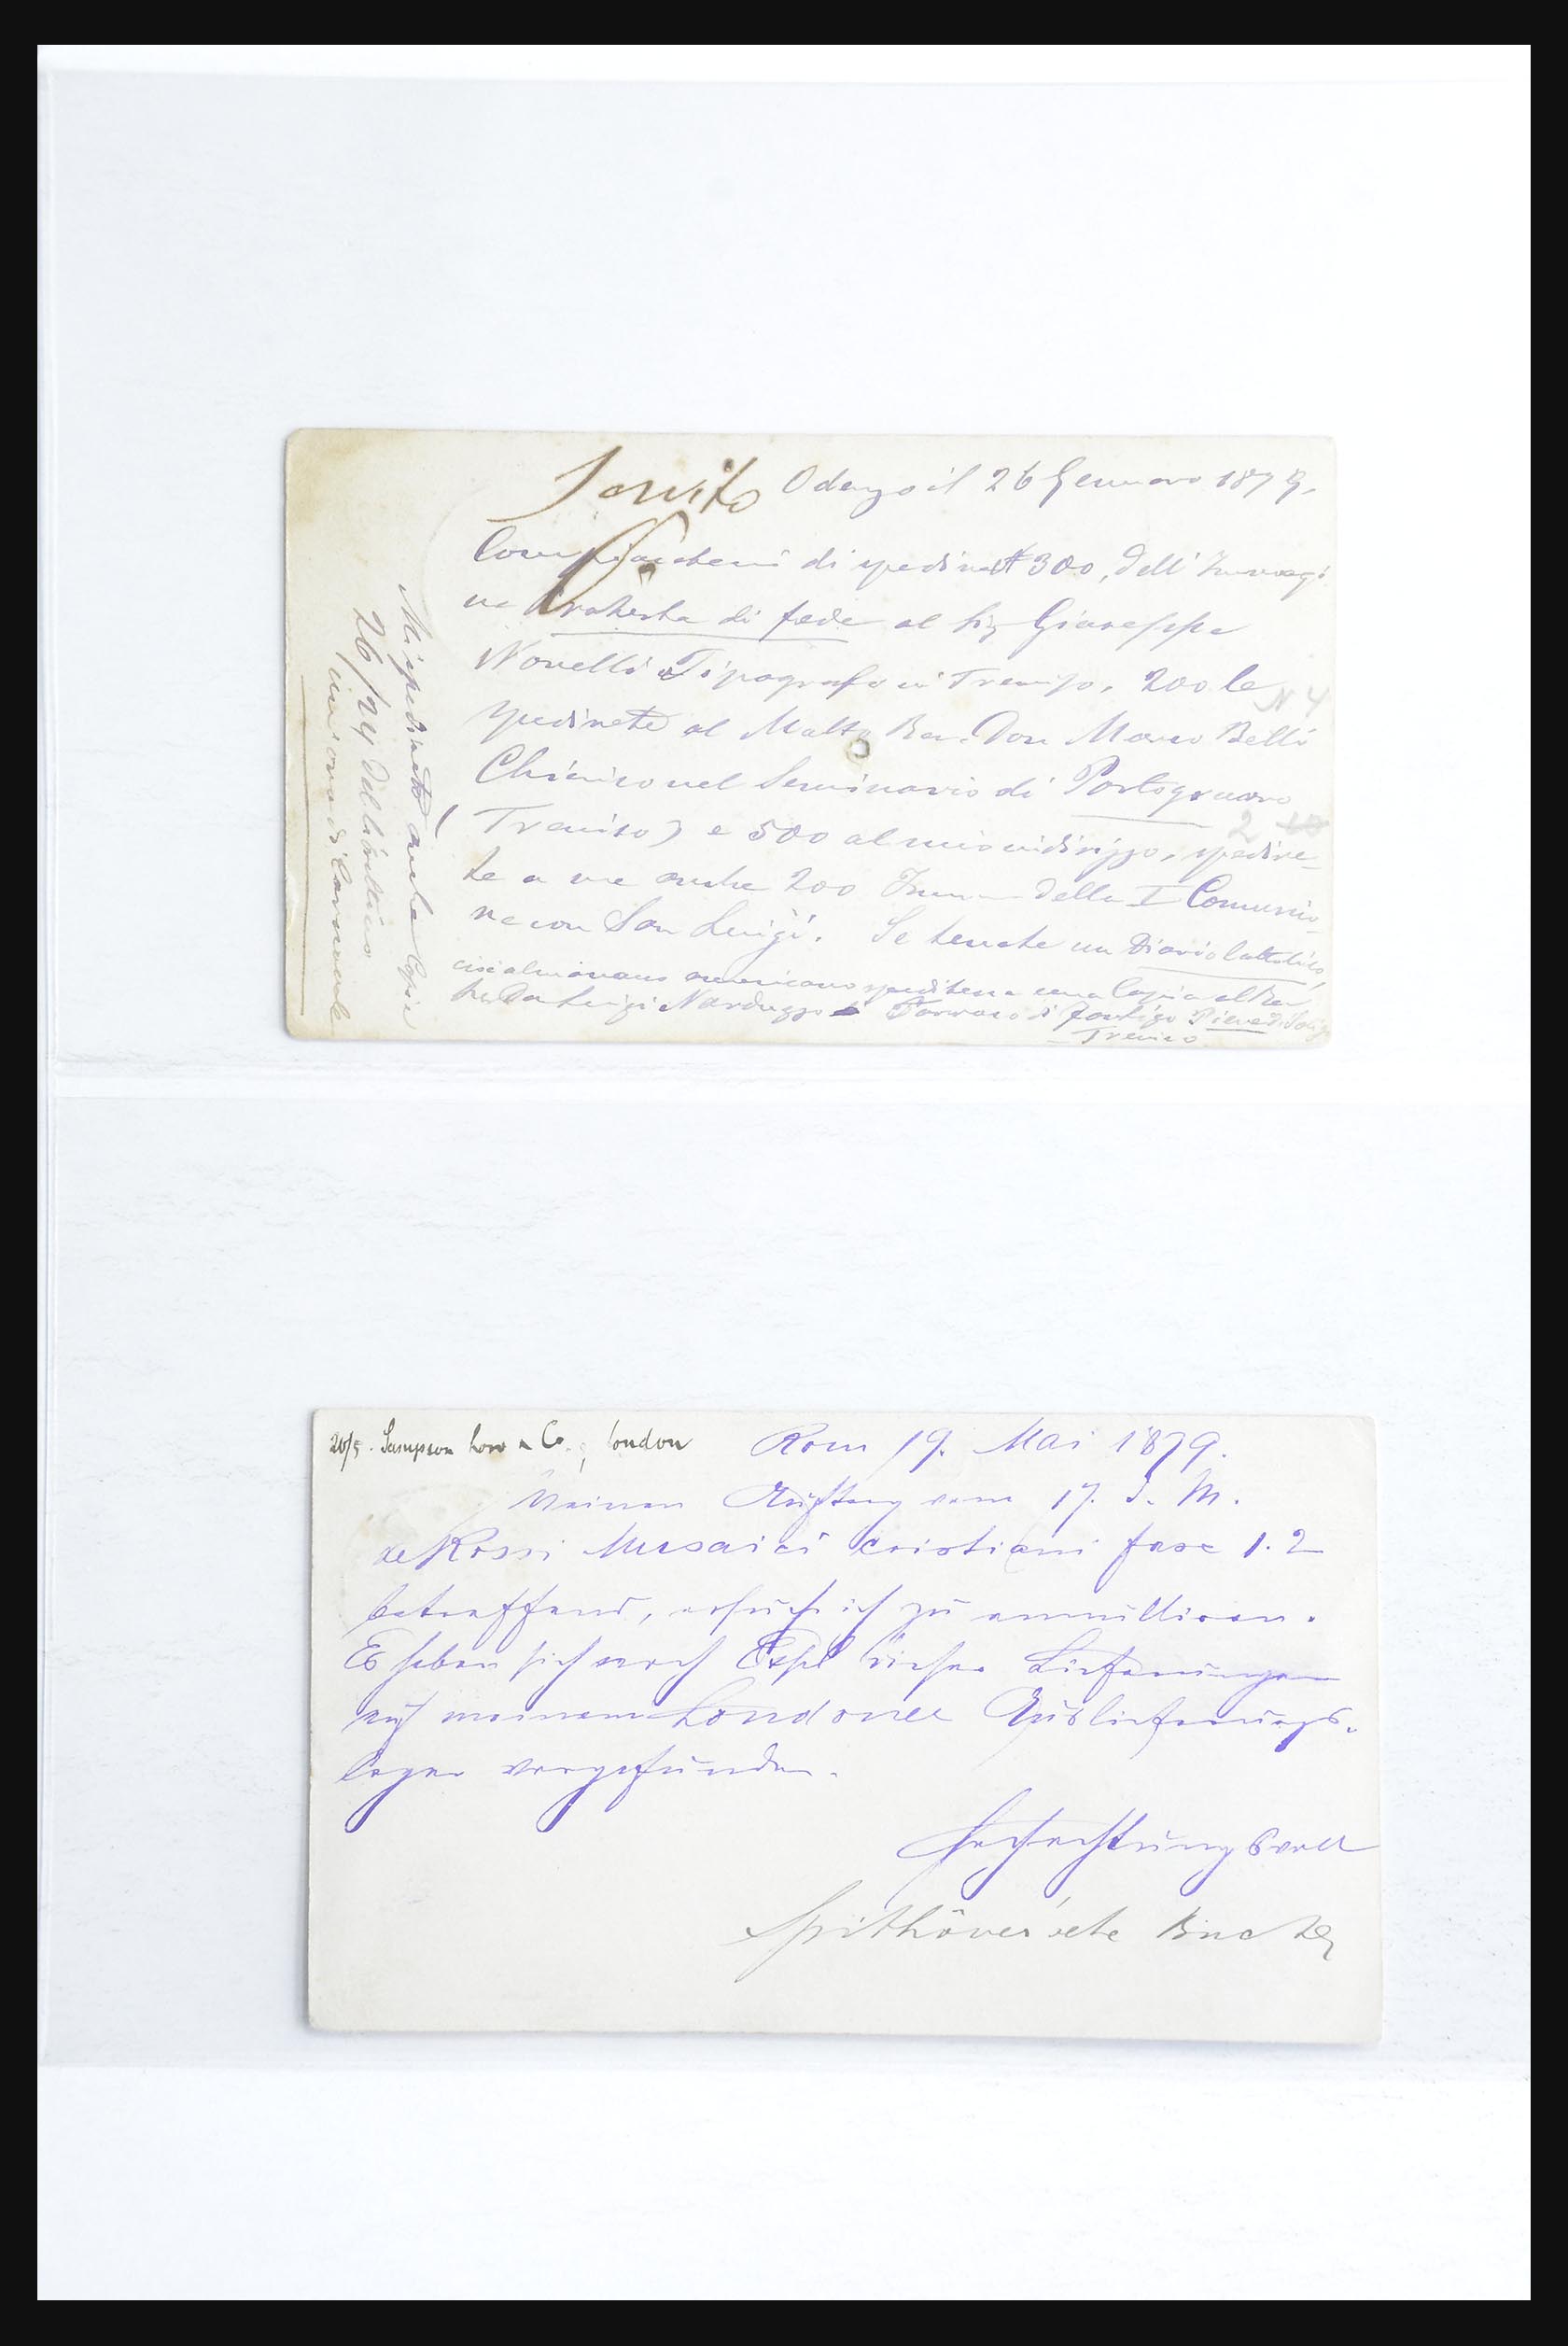 Servito Oderzo il 26 Gennaro 1879.
di spedire 300, dell' Immagi
ne Protesta di fede al Sig Giuseppe
Novelli Tipografo in Treviso, 200 le
N 4
spedirete al Molto Rev. Don Marco Belli
Chierico nel Seminario di Portogruaro
2 10
(Treviso) e 500 al mio indirizzo, spedire-
te a me anche 200 Imm della I Comunio
ne con San Luigi. Se tenete un Diario Cattolico,
americano una Copia al
Luigi Narduzzo Pieve di
Treviso
Mi spedirete anche Copie
26/24 del
di Carnevale
26/5. Sampson Low & Co., London
Rom 19. Mai 1879.
Meinen Auftrag vom 17. d. M.
de Rossi Musaici cristiani fasc 1.2
betreffend, ersuche ich zu annulliren.
Es haben sich noch Expl dieser Lieferungen
auf meinem Londoner Auslieferungs-
lager vorgefunden.
Hochachtungsvoll
Spithöver'sche Buchh